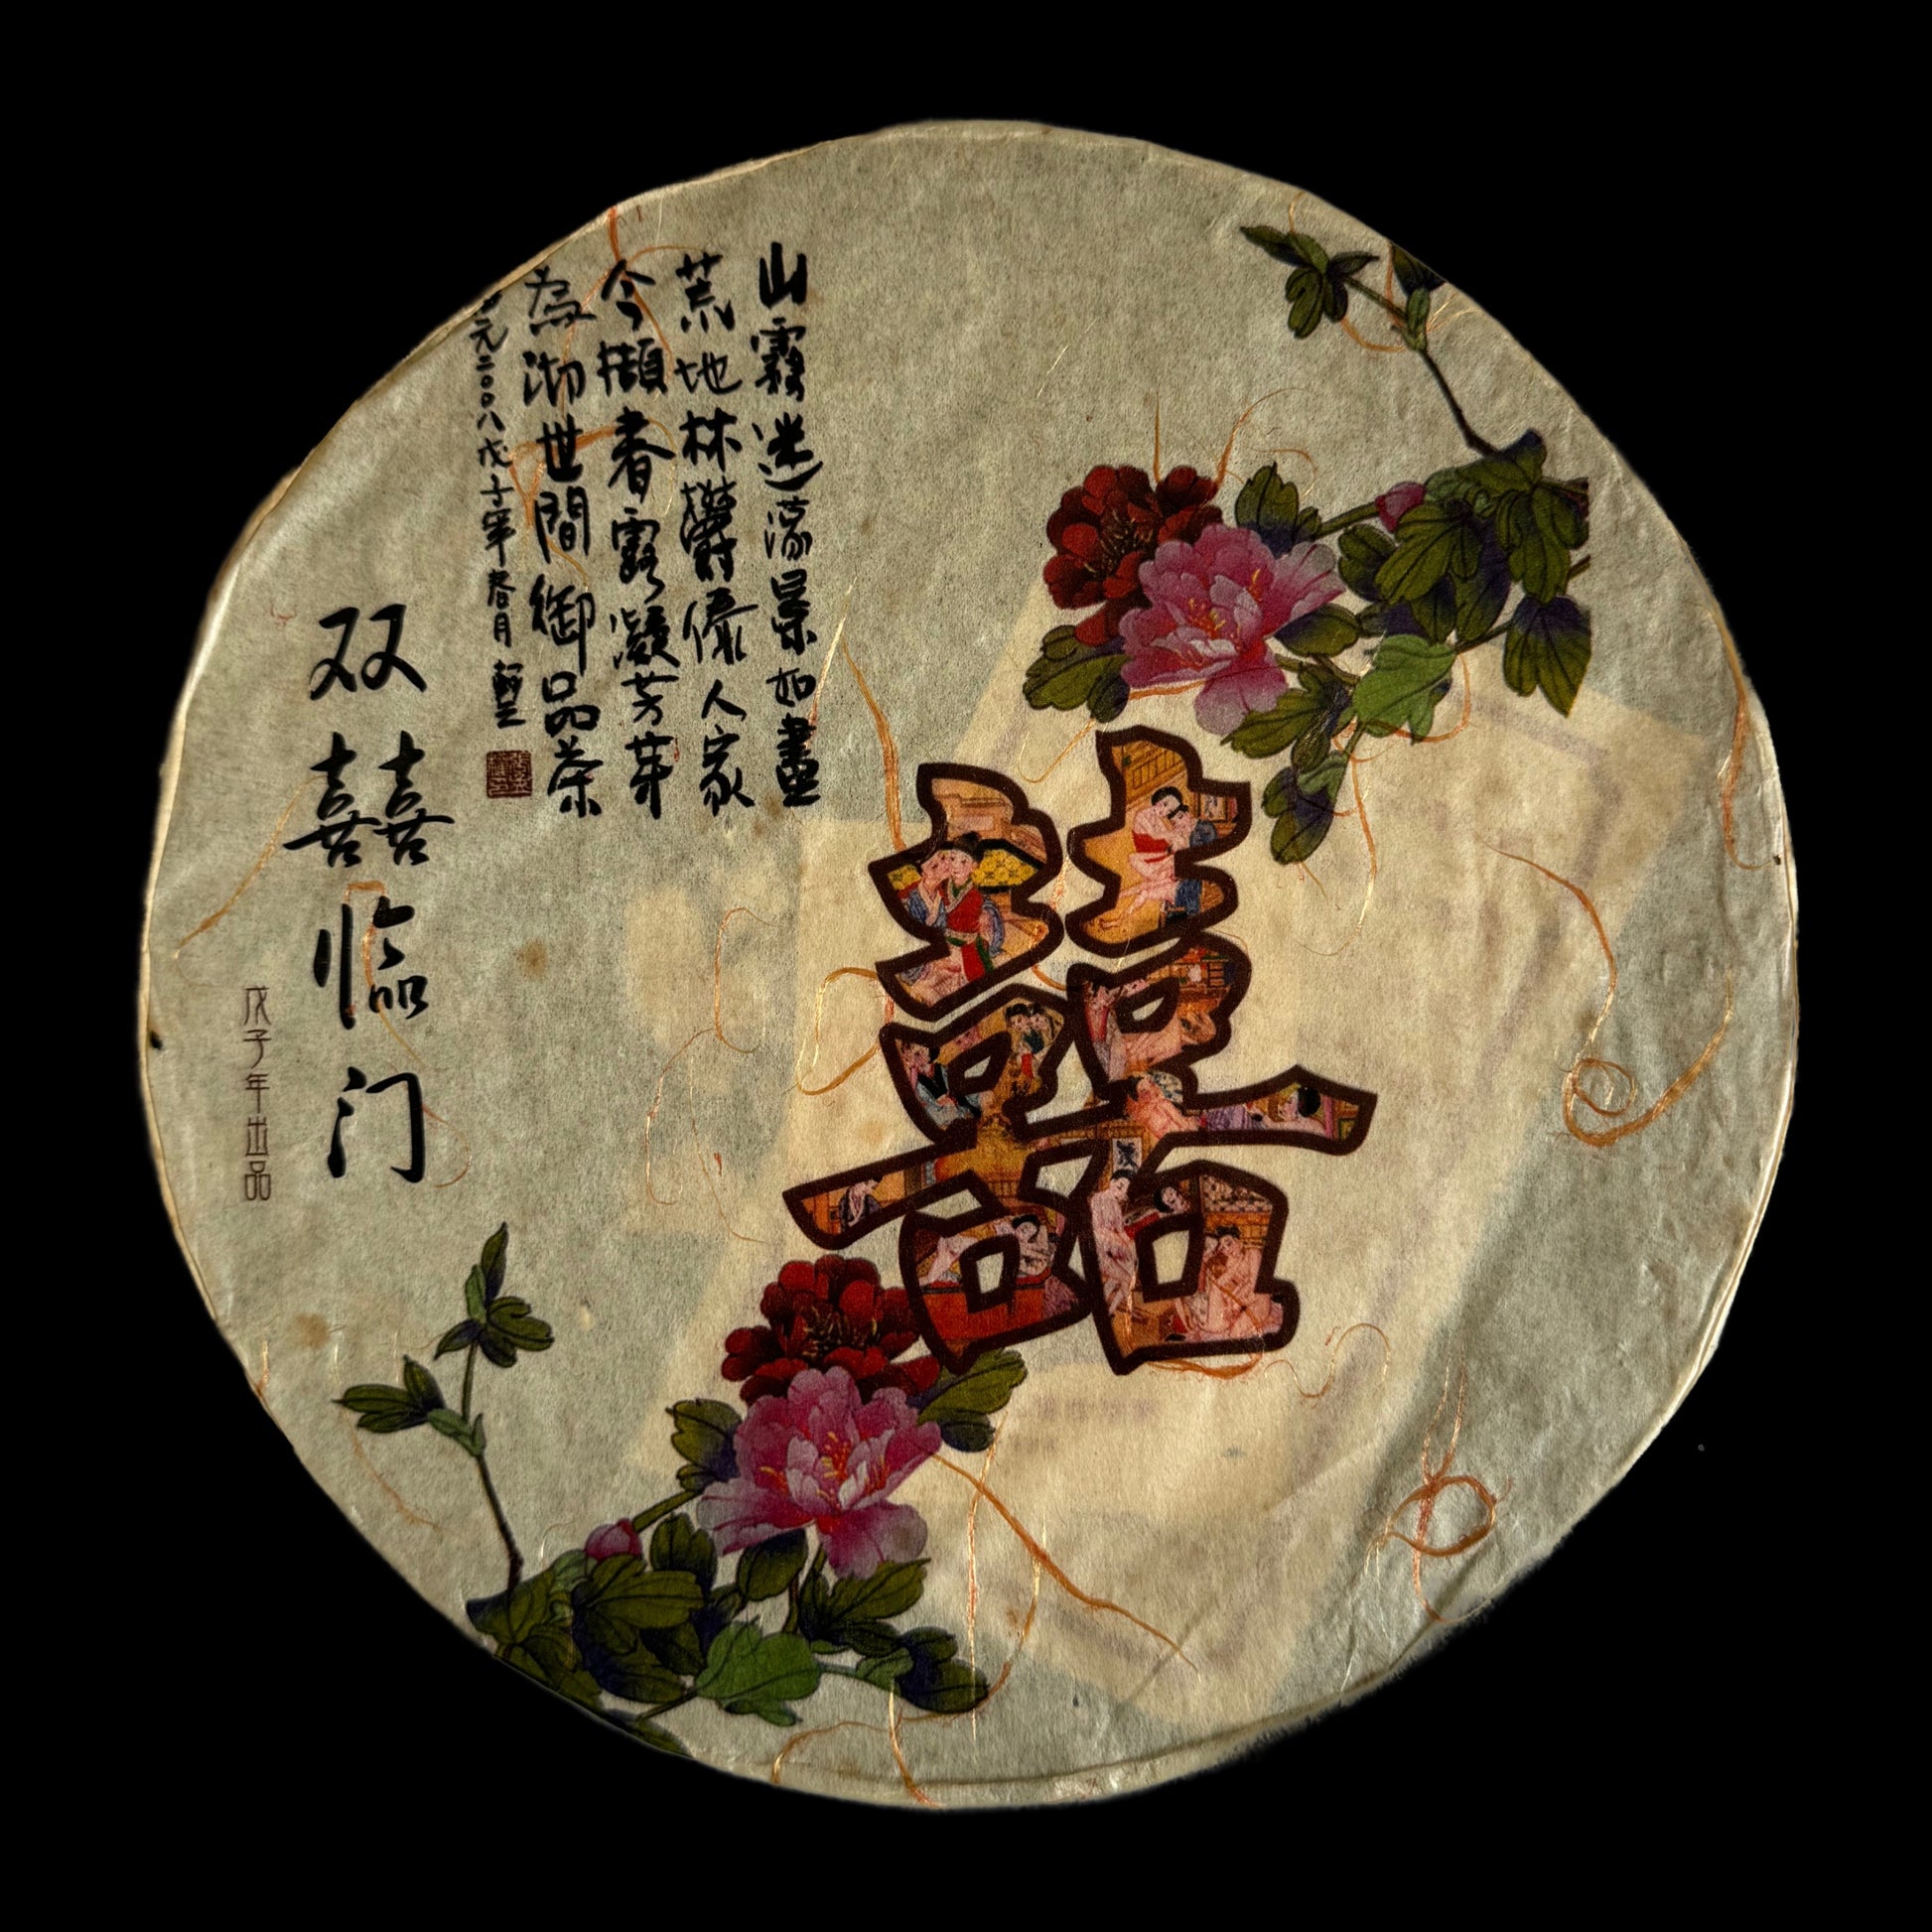 山霧迷濛景如畫
荒地林鬱傣人家
今擷春露凝芳芽
為沏世間御品茶
元二〇〇八戊子年春月
双囍临门
戊子年出品
囍